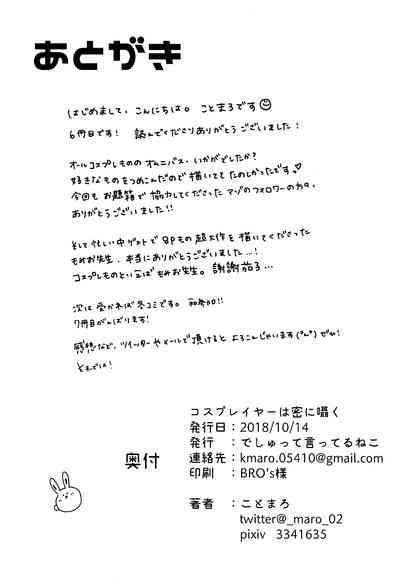 あとがき
はじめまして、こんにちは。ことまろです
6冊目です! 読んでくださりありがとうございました!
オールコスプレもののオムニバス、いかがでしたか?
好きなものをつめこんだので描いててたのしかったです♡
今回もお題箱で協力してくださったマゾのフォロワーの方々、
ありがとうございました!!
そして忙しい中ゲストで8Pもの超大作を描いてくださった
もみお先生、本当にありがとうございました…!
コスプレものといえばもみお先生。謝謝茄子…
次は受かれば冬コミです。初参加!!
7冊目がんばります!
感想など、ツイッターやメールで頂けるとよろこんじゃいます(^q^)ぜひ!
それでは!
奥付
コスプレイヤーは密に囁く
発行日:2018/10/14
発行 :でしゅって言ってるねこ
連絡先:kmaro.05410@gmail.com
印刷 :BRO's様
著者 :ことまろ
twitter@_maro_02
pixiv 3341635